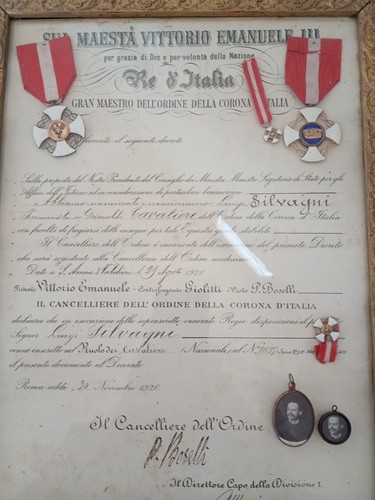 SUA MAESTÀ VITTORIO EMANUELE III
per grazia di Dio e per volontà della Nazione
Re d'Italia
GRAN MAESTRO DELL'ORDINE DELLA CORONA D'ITALIA
il seguente decreto
Sulla proposta del Nostro Presidente del Consiglio dei Ministri Ministro Segretario di Stato per gli
Affari dell'Interno ed in considerazione di particolari benemerenze
Abbiamo nominato e nominiamo Luigi Silvagni
Cavaliere dell'Ordine della Corona d'Italia
con facoltà di fregiarsi delle insegne per tale Equestre grado stabilite
Il Cancelliere dell'Ordine è incaricato dell'esecuzione del presente Decreto
che sarà registrato alla Cancelleria dell'Ordine medesimo
Dato a S. Anna Valdieri 29 Agosto 1920
Firmato Vittorio Emanuele Controfirmato Giolitti Visto P. Boselli
IL CANCELLIERE DELL'ORDINE DELLA CORONA D'ITALIA
dichiara che in esecuzione delle soprascritte venerate Regie disposizioni il
Signor Luigi Silvagni
venne inscritto nel Ruolo dei Cavalieri Nazionali al N
il presente documento al Decorato
Roma addì 20 Novembre 1920
Il Cancelliere dell'Ordine
P. Boselli
Il Direttore Capo della Divisione I